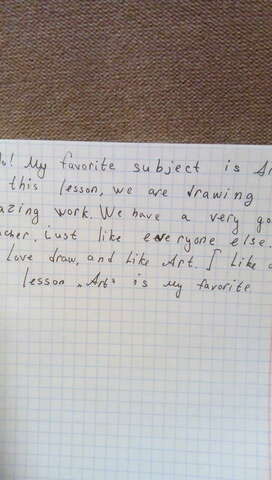 lo! My favorite subject is Ar
this lesson, we are drawing
azing work. We have a very go
acher, just like everyone else.
Love draw, and Like Art. I Like a
lesson „Art" is my favorite